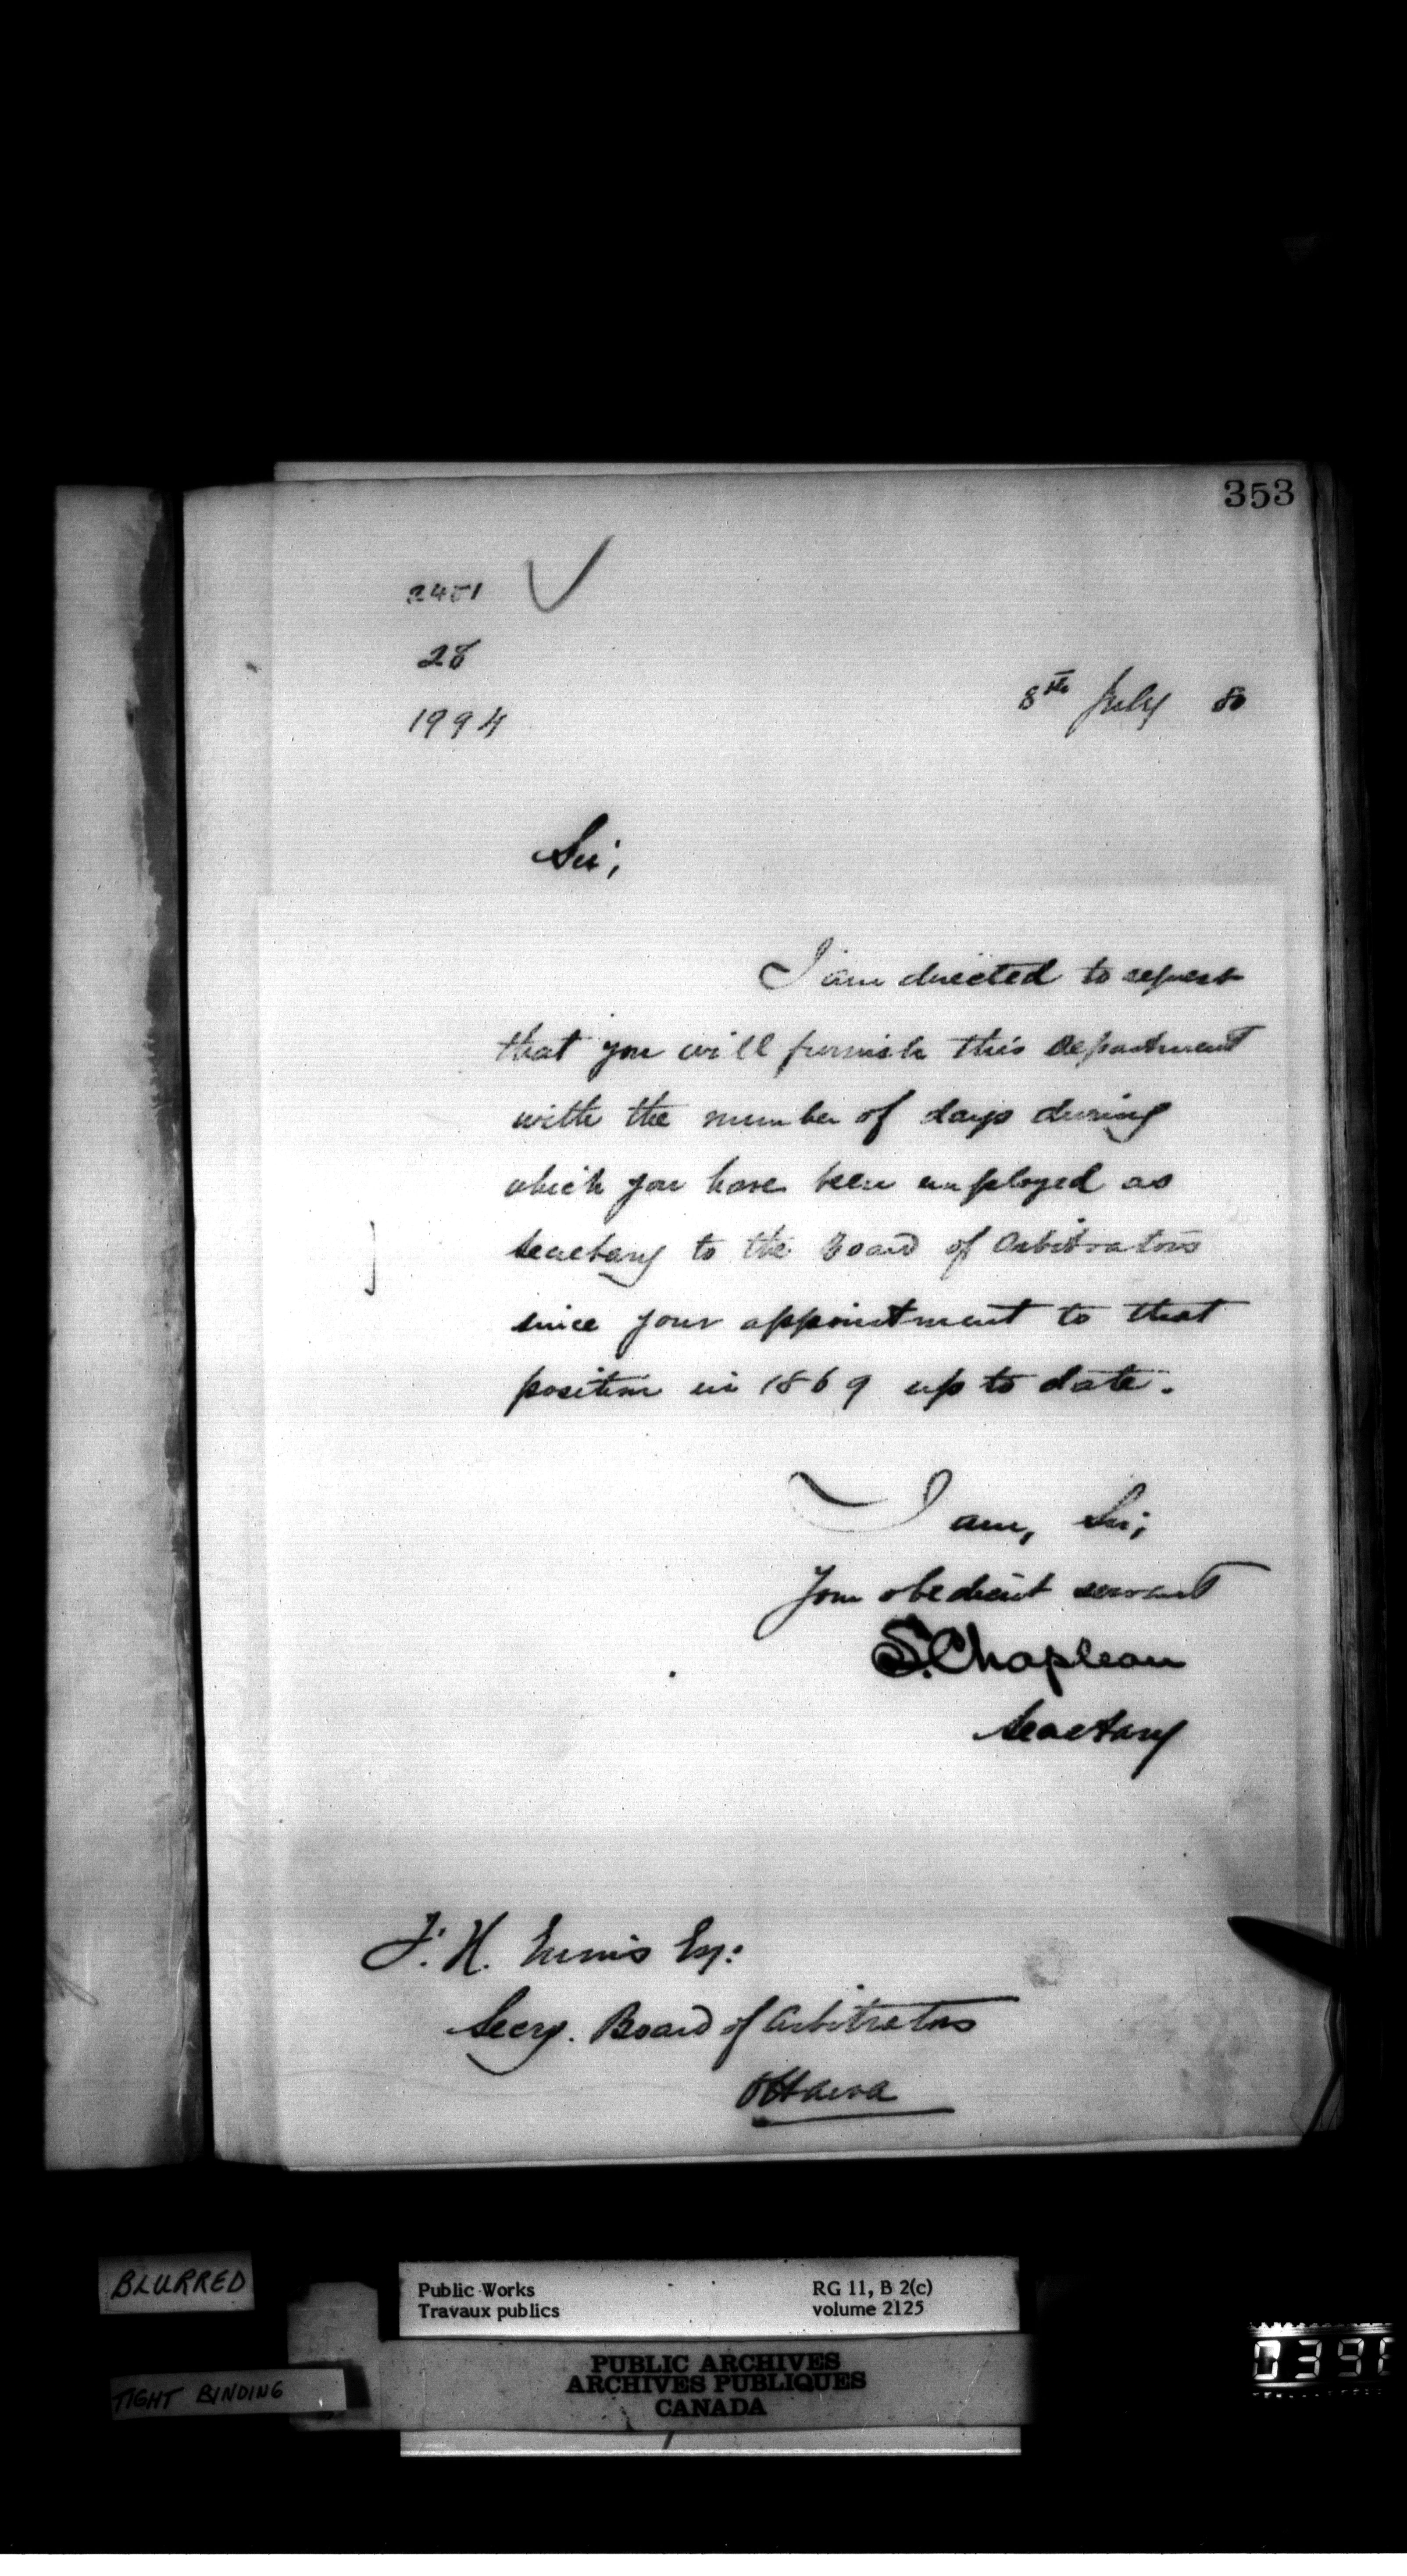 353
2451
28
1994
8th July 80
Sir,
I am directed to request
that you will furnish this Department
with the number of days during
which you have been employed as
Secretary to the Board of Arbitrators
since your appointment to that
position in 1869 up to date.
I am, Sir,
Your obedient servant
S. Chapleau
Secretary
F. H. Ennis Esq:
Secry. Board of Arbitrators
Ottawa
BLURRED
Public Works
Travaux publics
RG 11, B 2(c)
volume 2125
TIGHT BINDING
PUBLIC ARCHIVES
ARCHIVES PUBLIQUES
CANADA